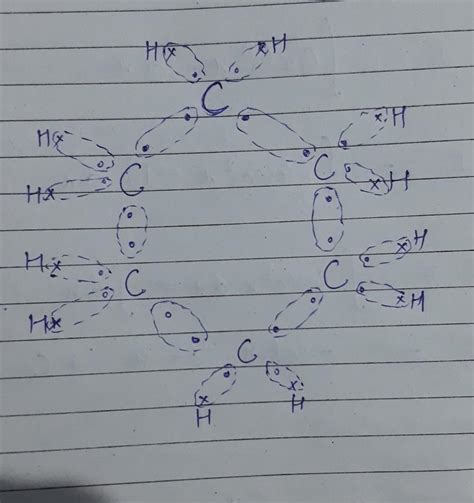 H H
C
H H
C C
H H
H H
C C
H H
C
H H